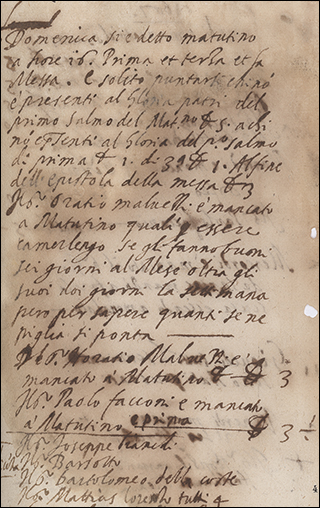 Domenica si è detto matutino
a hore 16. Prima et terza et la
Messa. è solito puntar si chi nō
è presenti al Gloria patri del
primo salmo del Matno 5. a chi
al Gloria del po salmo
di prima 1. di 3a 1. Al fine
dell epistola della messa 3
Il Sr. Oratio maluelli è mancato
a Matutino quali p essere
camerlengo se gli fanno buoni
sei giorni al Mese oltra gli
suoi doi giorni la settimana
pero per sapere quanti se ne
piglia si ponta
Horatio è
mancato a Matutino 3
Il Sr. Paolo facconi e mancato
a Matutino e prima 3
Il Sr. Joseppe
Il Sr. Bartolo
Il Sr. Bartolomeo della corte
Il Sr. Mattias lorento tutti 4
4